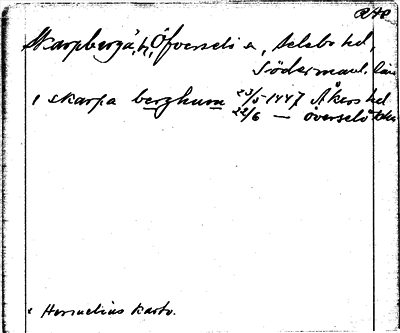 Skarpbergå, h, Öfverselö sn, Selebo hd,
Södermanl. län
i skarpa berghum 23/5 1447 Åkers hd
22/6 — överselö
Hermelins karta.